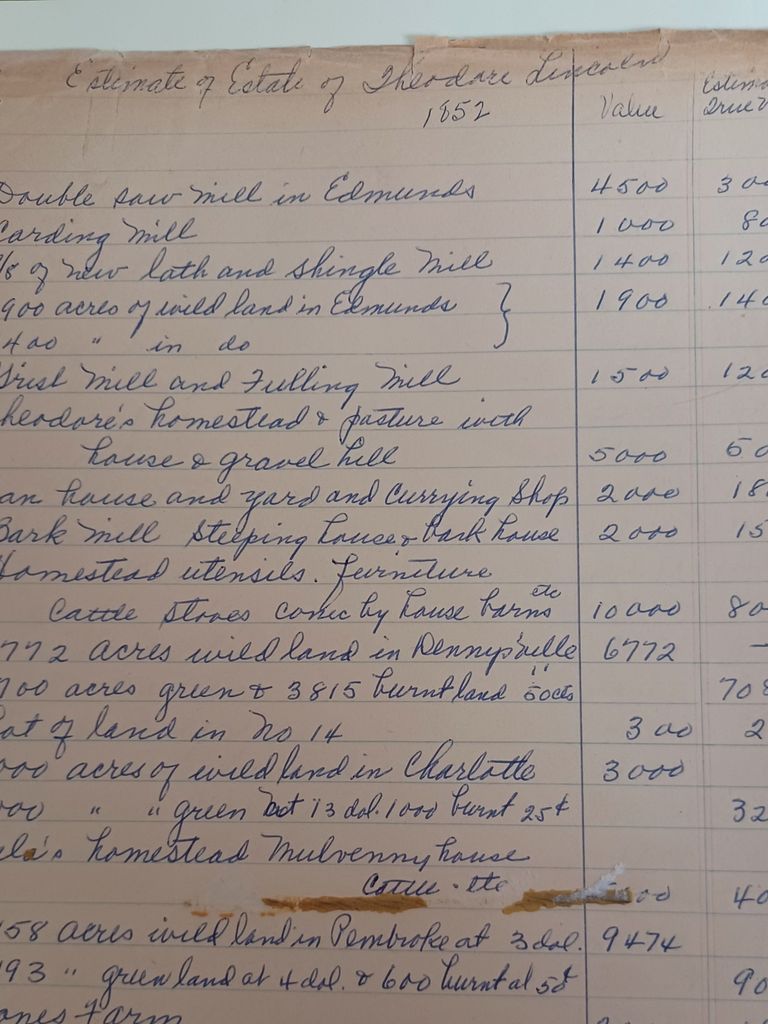 Estimate of Estate of Theodore Lincoln
1852
Value Estim
True V
Double saw mill in Edmunds 4500 300
Carding Mill 1000 80
/8 of new lath and shingle Mill 1400 120
900 acres of wild land in Edmunds } 1900 140
400 " in do
Grist Mill and Fulling Mill 1500 120
heodore's homestead & pasture with
house & gravel hill 5000 50
an house and yard and Currying Shop 2000 18
Bark Mill Steeping house & bark house 2000 15
Homestead utensils. furniture
Cattle Stoves by house barns etc 10000 80
772 acres wild land in Dennysville 6772 —
700 acres green & 3815 burnt land 50cts 708
ot of land in No 14 300 2
000 acres of wild land in Charlotte 3000
000 " " green 13 dol. 1000 burnt 25¢ 32
homestead Mulvenny house
Cattle - etc 00 40
58 acres wild land in Pembroke at 3 dol. 9474
93 " green land at 4 dol. & 600 burnt at 50¢ 90
ones Farm